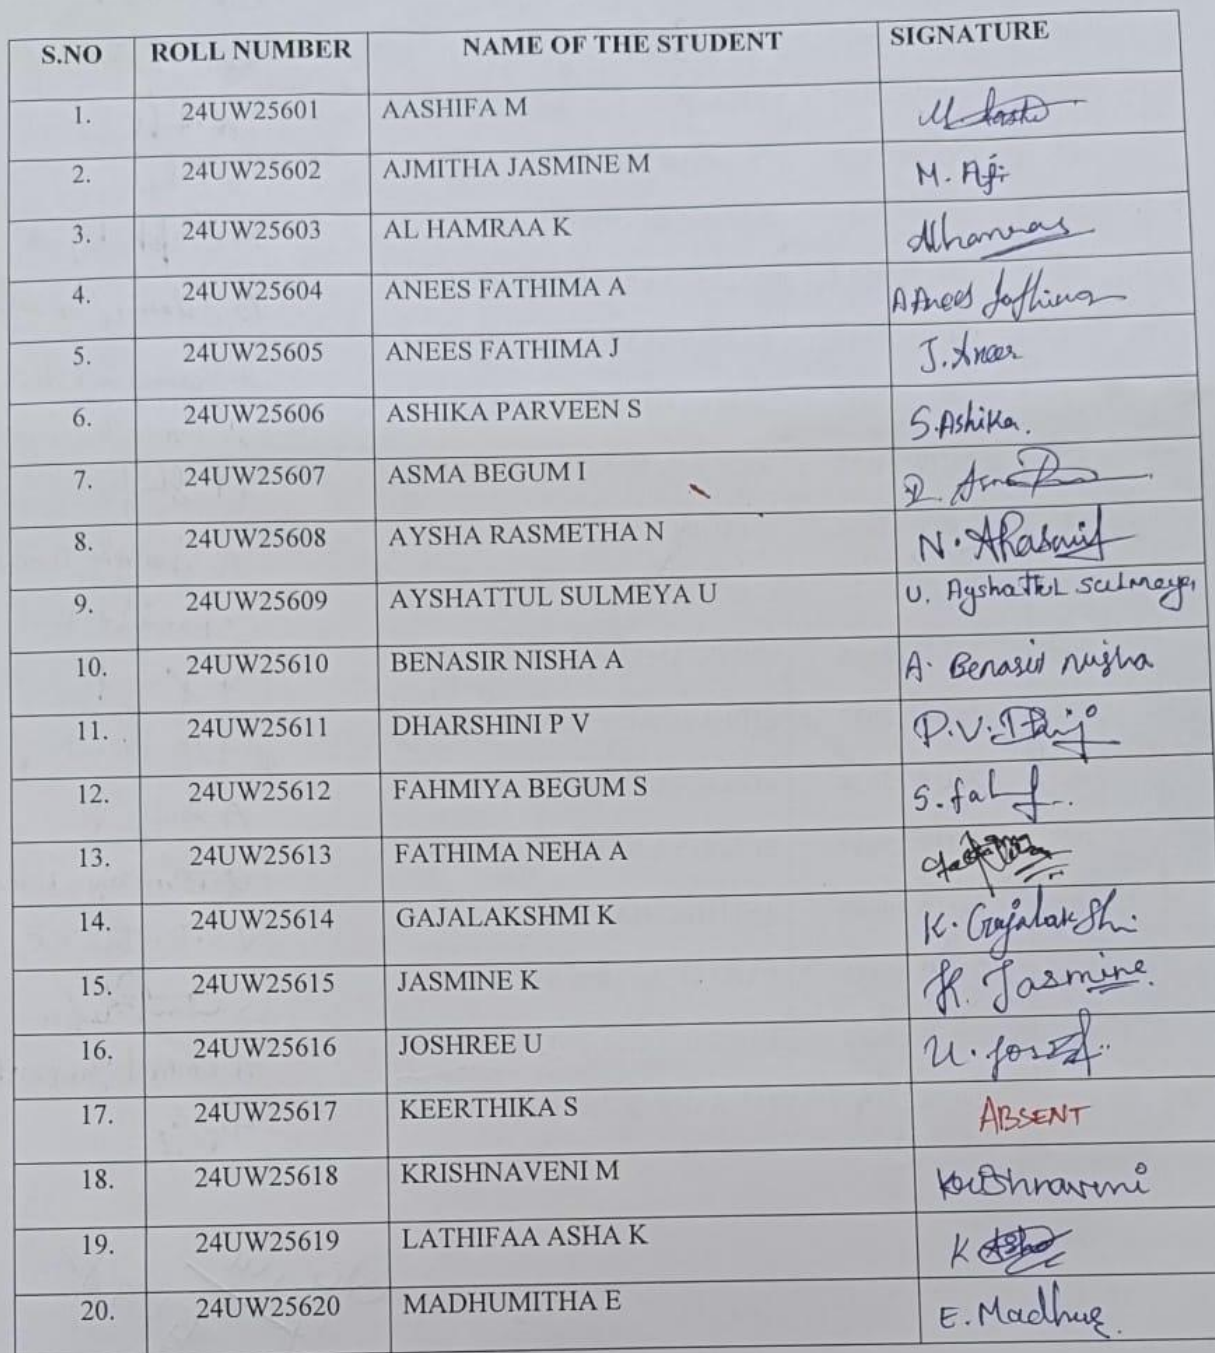 S.NO ROLL NUMBER NAME OF THE STUDENT SIGNATURE
1. 24UW25601 AASHIFA M
2. 24UW25602 AJMITHA JASMINE M M. Aji
3. 24UW25603 AL HAMRAA K
4. 24UW25604 ANEES FATHIMA A A Anees Fathima
5. 24UW25605 ANEES FATHIMA J J. Anees
6. 24UW25606 ASHIKA PARVEEN S S. Ashika.
7. 24UW25607 ASMA BEGUM I
8. 24UW25608 AYSHA RASMETHA N N.
9. 24UW25609 AYSHATTUL SULMEYA U U. Ayshattul Sulmeya
10. 24UW25610 BENASIR NISHA A A. Benasir Nisha
11. 24UW25611 DHARSHINI P V P.V.
12. 24UW25612 FAHMIYA BEGUM S S.
13. 24UW25613 FATHIMA NEHA A
14. 24UW25614 GAJALAKSHMI K K. Gajalakshi
15. 24UW25615 JASMINE K K. Jasmine.
16. 24UW25616 JOSHREE U U.
17. 24UW25617 KEERTHIKA S ABSENT
18. 24UW25618 KRISHNAVENI M Krishnaveni
19. 24UW25619 LATHIFAA ASHA K K Asha
20. 24UW25620 MADHUMITHA E E. Madhu